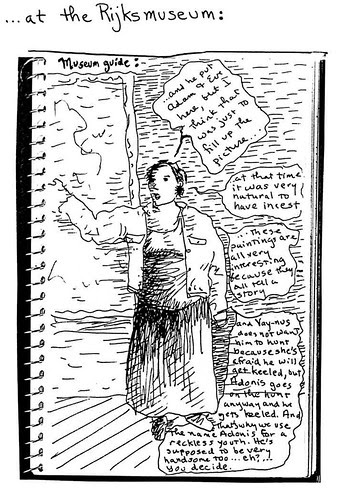 ...at the Rijksmuseum:
Museum guide:
..and he put
Adam & Eve
here, but I
think that
was just to
fill up the
picture...
at that time
it was very
nutural to
have incest
...These
paintings are
all very
interesting
because they
all tell a
story
and Vay-nus
does not want
him to hunt
because she's
afraid he will
get keeled, but
Adonis goes
on the hunt
anyway and he
gets keeled. And
that's why we use
the name Adonis for a
reckless youth. He's
supposed to be very
handsome too...eh?...
you decide.